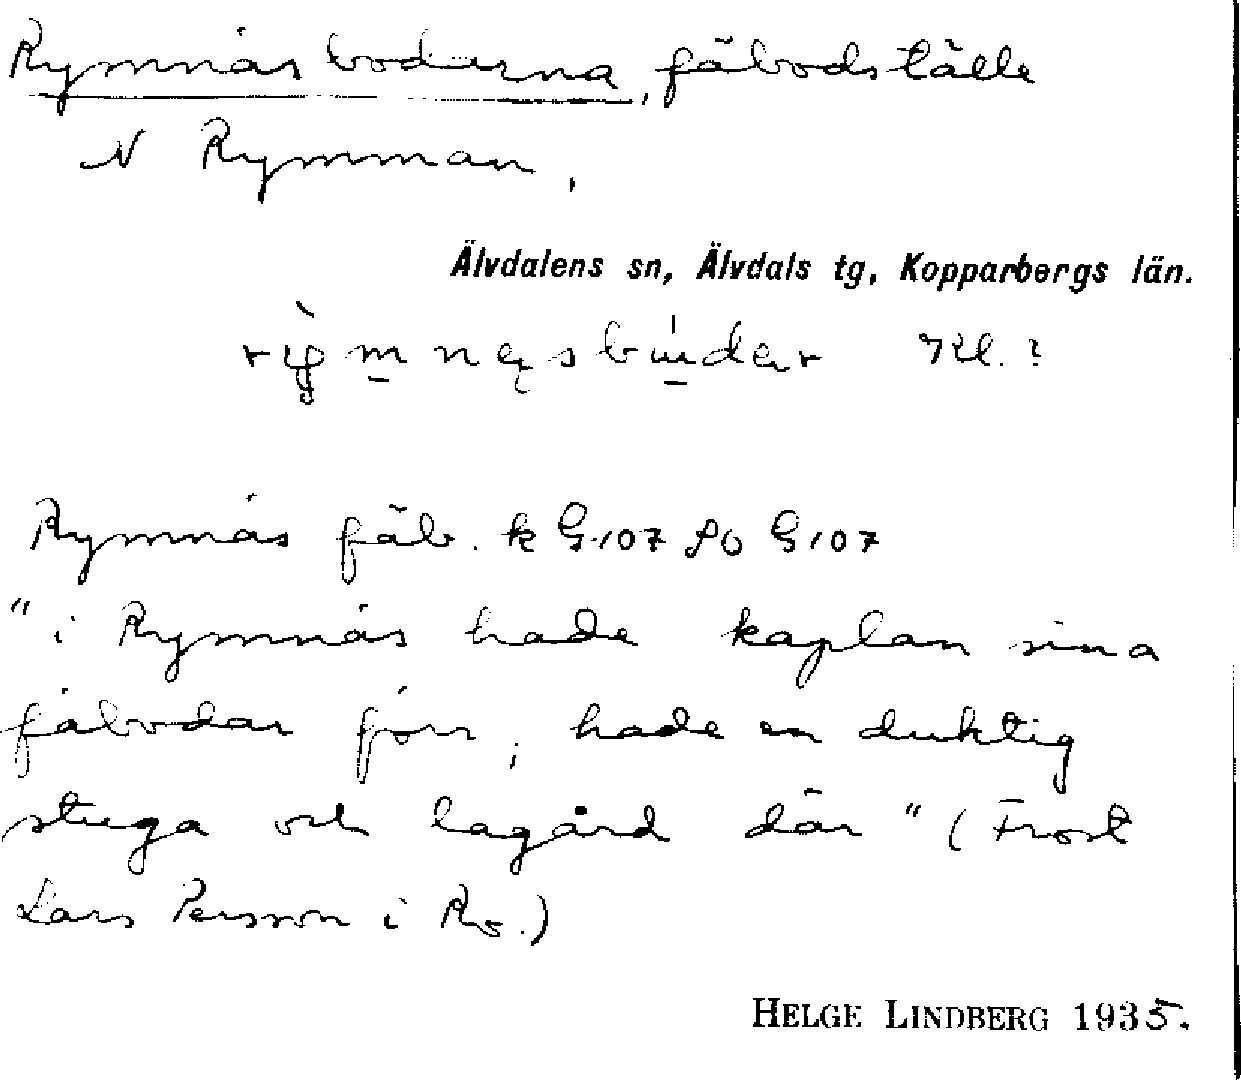 Rymnäsboderna, fäbodställe
N Rymman,
Älvdalens sn, Älvdals tg, Kopparbergs län.
Rymnäs fäb. k G107 Po G107
"i Rymnäs hade kaplan sina
fäbodar förr, hade en duktig
stuga och lagård där" (Frost
Lars Persson i Ro.)
HELGE LINDBERG 1935.